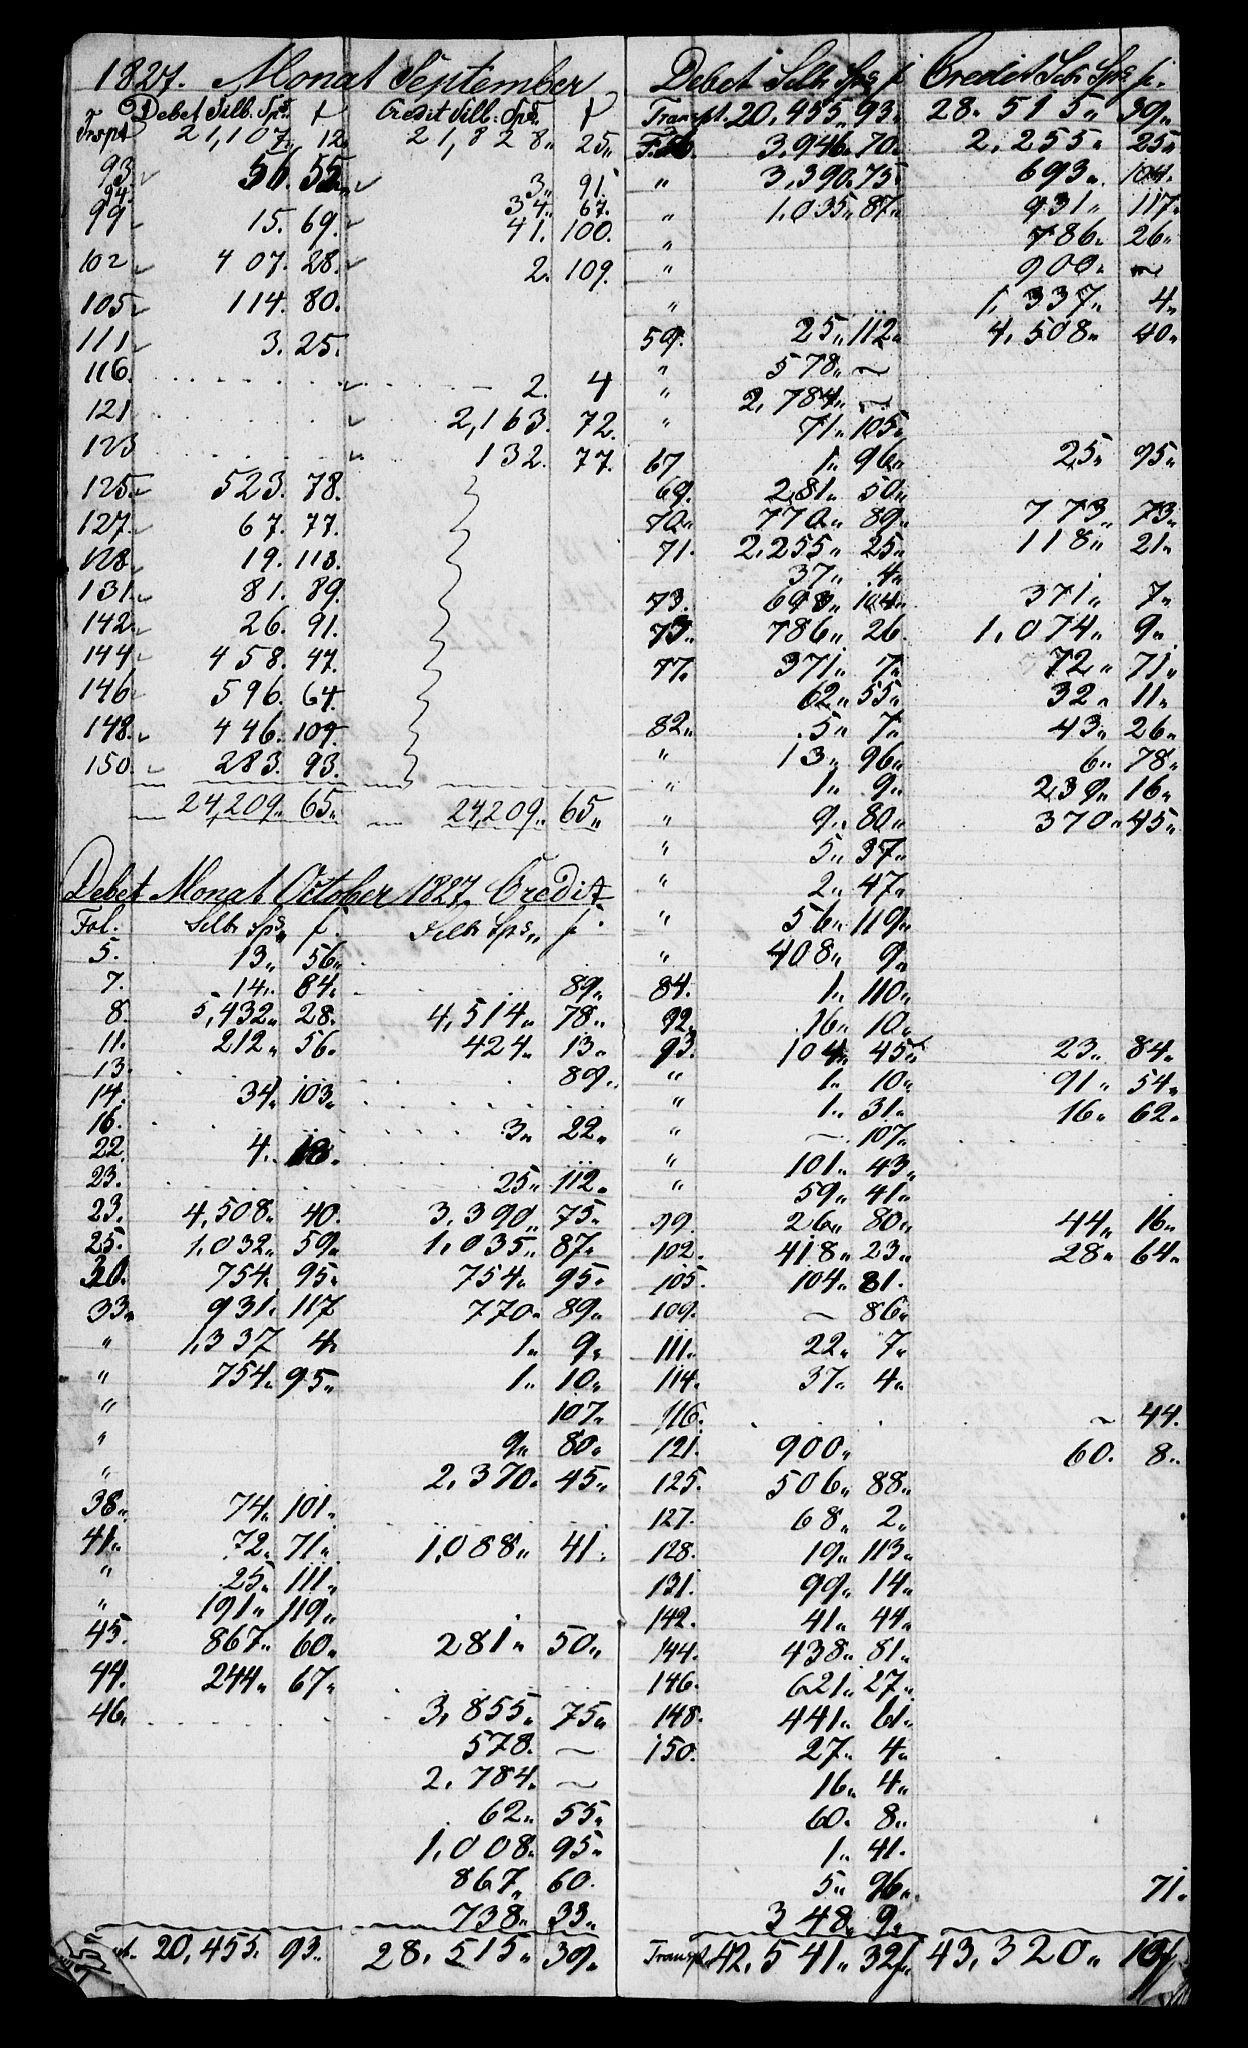 1827. Monat September
Debet Silb. Sps. f Credit Silb: Sps. f
Trspt 21,107„ 12„ 21,828„ 25„
93. 56. 55. 3„ 91.
94. 34„ 67.
99 15. 69. 41. 100.
102 407. 28. 2. 109.
105 114. 80.
111 3. 25.
116. 2. 4
121 2,163. 72.
123 132. 77.
125. 523. 78.
127. 67. 77.
128 19. 113.
131. 81. 89.
142. 26. 91.
144 458. 47.
146 596. 64.
148. 446. 109.
150. 283. 93.
24,209„ 65„ 24,209„ 65„
Debet Monat October 1827. Credit
Fol. Silb Sps„ f. Silb Sps„ f.
5. 13„ 56„
7. 14„ 84„ 89„
8. 5,432„ 28. 4,514„ 78„
11. 212„ 56. 424„ 13„
13. 89„
14. 34„ 103„
16. 3„ 22„
22. 4. 18.
23. 25„ 112„
23. 4,508„ 40. 3.390„ 75„
25. 1,032„ 59„ 1,035„ 87„
30. 754„ 95„ 754„ 95„
33„ 931„ 117 770„ 89„
„ 1,337 4„ 1„ 9„
„ 754„ 95„ 1„ 10„
„ 107„
„ 9„ 80„
„ 2,370„ 45„
38„ 74„ 101„
41„ 72„ 71„ 1,088„ 41„
„ 25„ 111„
„ 191„ 119„
45. 867„ 60„ 281„ 50„
44. 244„ 67„
46. 3,855„ 75„
578. ~
2.784„ ~
62„ 55„
1,008„ 95„
867„ 60.
738„ 33„
20,455. 93„ 28.515„ 39„
Debet Silb Sps f Credit Silb Sps f.
Transpt. 20,455„ 93„ 28.515„ 39„
3.946„ 70„ 2.255„ 25„
„ 3,390„ 75„ 693„ 104.
„ 1,035„ 87„ 931„ 117„
„ 786„ 26„
„ 900„ ~
„ 1,337„ 4„
59. 25„ 112„ 4,508„ 40„
„ 578„ ~
„ 2,784„ ~
„ 71„ 105„
67 1„ 96„ 25„ 95„
69. 281„ 50„
70„ 770„ 89„ 773„ 73„
71. 2,255„ 25„ 118„ 21„
37„ 4„
73. 693„ 104„ 371„ 7„
75„ 786„ 26. 1,074„ 9„
77. 371„ 7„ 72„ 71„
62„ 55„ 32„ 11„
82„ 5„ 7„ 43„ 26„
„ 13„ 96„ 6„ 78„
„ 1„ 9„ 239„ 16„
„ 9„ 80„ 370„ 45„
„ 5„ 37„
„ 2„ 47„
„ 56„ 119„
„ 408„ 9„
84. 1„ 110„
92. 16„ 10„
93. 104„ 45„ 23„ 84„
„ 1„ 10„ 91„ 54„
„ 1„ 31„ 16„ 62„
„ ~ 107„
„ 101„ 43„
„ 59„ 41„
99. 26„ 80„ 44„ 16„
102. 418„ 23„ 28„ 64„
105. 104„ 81.
109. ~ 86„
111. 22„ 7„
114. 37„ 4„
116. ~ 44.
121. 900„ 60. 8„
125. 506„ 88„
127. 68„ 2„
128. 19„ 113„
131. 99„ 14„
142. 41„ 44„
144. 438„ 81„
146. 621„ 27„
148. 441„ 61„
150. 27„ 4„
16„ 4„
60. 8„
1„ 41.
5„ 96„ 71.
348„ 9„
Transpt. 42,541„ 32f„ 43,320„